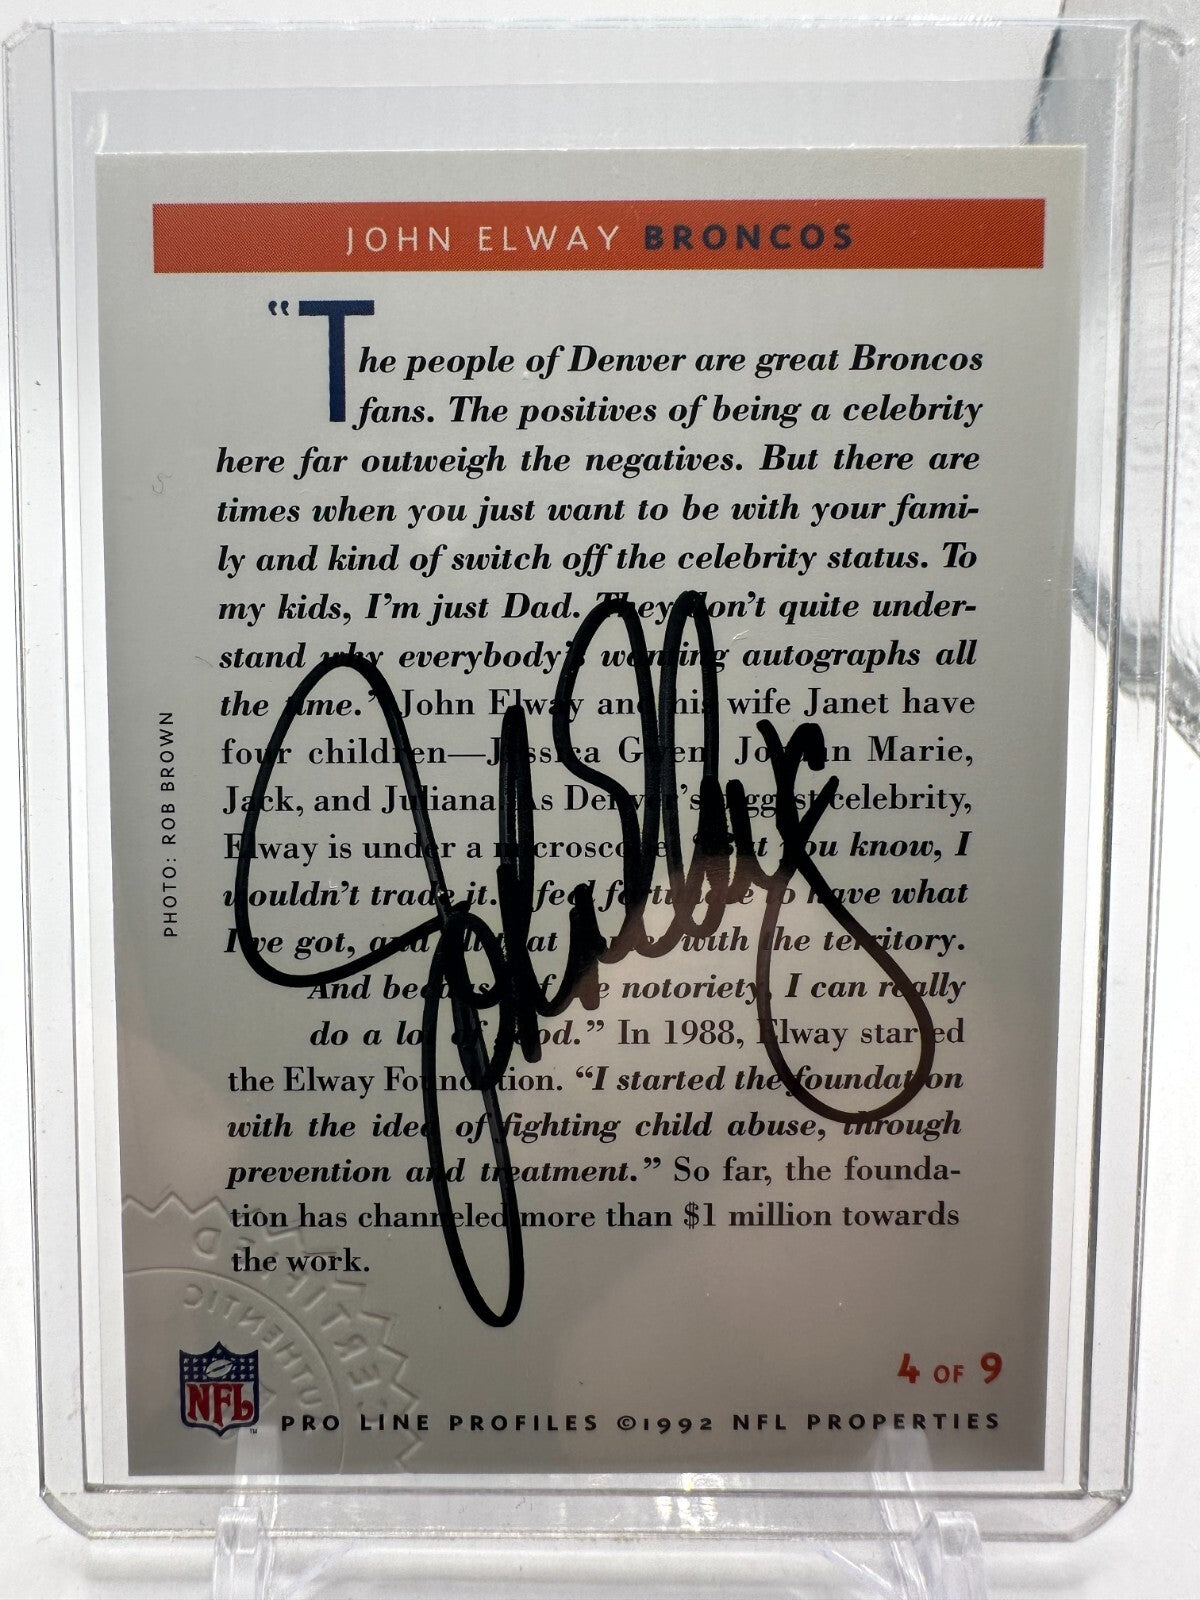 JOHN ELWAY BRONCOS
“The people of Denver are great Broncos
fans. The positives of being a celebrity
here far outweigh the negatives. But there are
times when you just want to be with your fami-
ly and kind of switch off the celebrity status. To
my kids, I’m just Dad. They don’t quite under-
stand why everybody’s wanting autographs all
the time.” John Elway and his wife Janet have
four children—Jessica Gwen, Jordan Marie,
Jack, and Juliana. As Denver’s biggest celebrity,
Elway is under a microscope. “But you know, I
wouldn’t trade it. I feel fortunate to have what
I’ve got, and all that comes with the territory.
And because of the notoriety, I can really
do a lot of good.” In 1988, Elway started
the Elway Foundation. “I started the foundation
with the idea of fighting child abuse, through
prevention and treatment.” So far, the founda-
tion has channeled more than $1 million towards
the work.
PHOTO: ROB BROWN
4 OF 9
NFL
TM
PRO LINE PROFILES ©1992 NFL PROPERTIES
CERTIFIED
AUTHENTIC